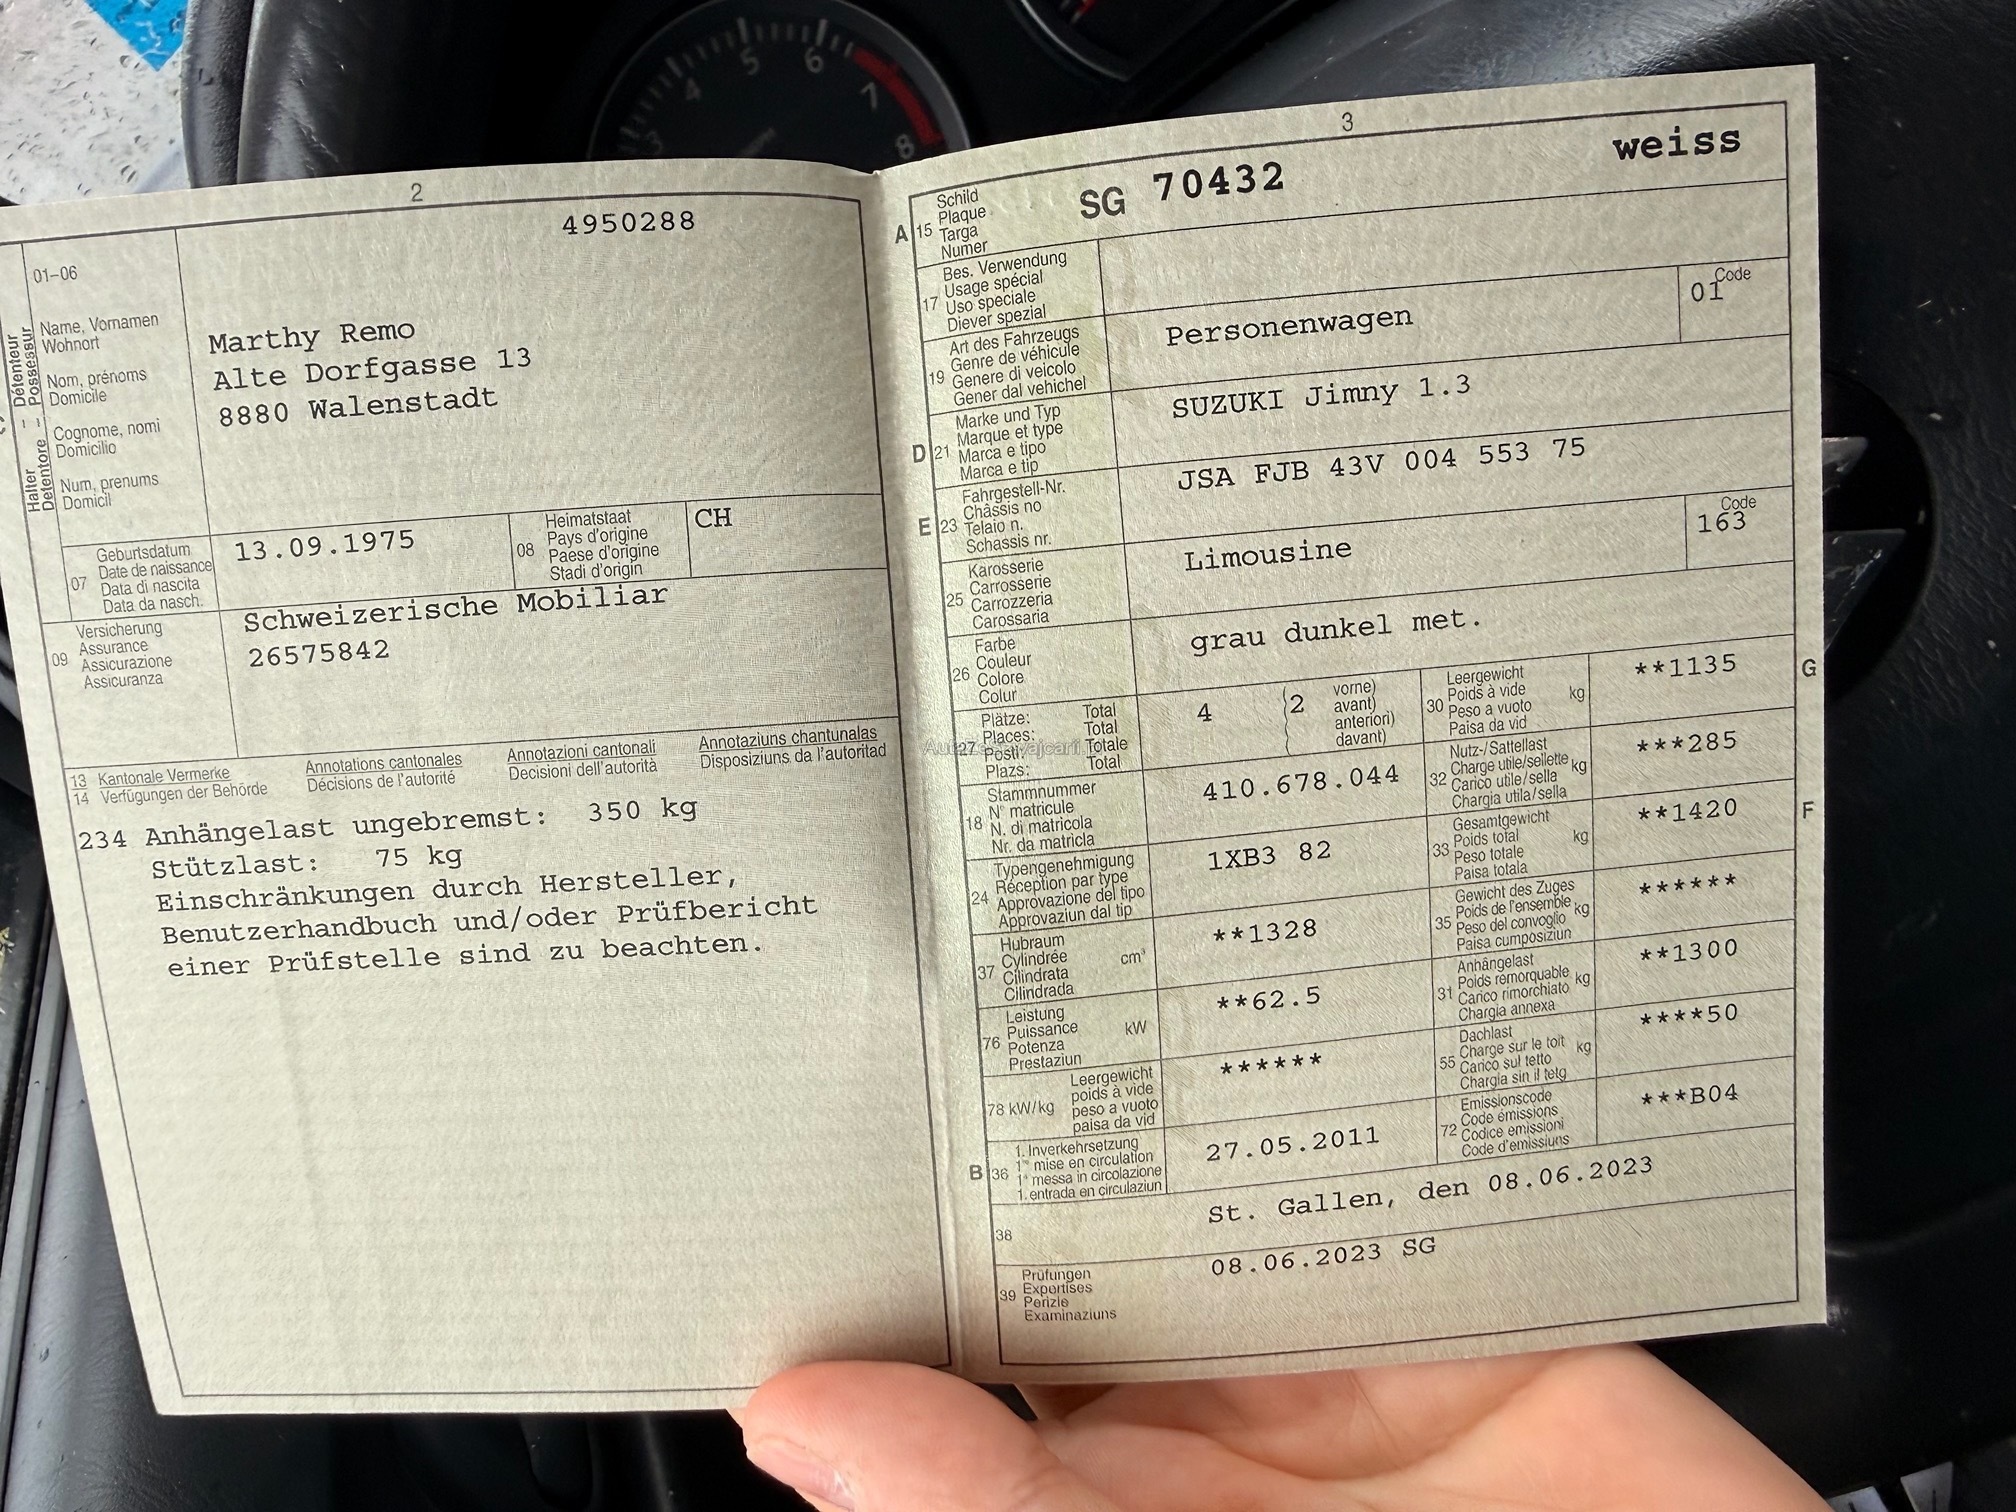 3
4
5
6
7
8
2
4950288
01–06
Halter – Détenteur
Detentore – Possesseur
Name, Vornamen
Wohnort
Nom, prénoms
Domicile
Cognome, nomi
Domicilio
Num, prenums
Domicil
Marthy Remo
Alte Dorfgasse 13
8880 Walenstadt
07
Geburtsdatum
Date de naissance
Data di nascita
Data da nasch.
13.09.1975
08
Heimatstaat
Pays d'origine
Paese d'origine
Stadi d'origin
CH
09
Versicherung
Assurance
Assicurazione
Assicuranza
Schweizerische Mobiliar
26575842
13 Kantonale Vermerke
14 Verfügungen der Behörde
Annotations cantonales
Décisions de l'autorité
Annotazioni cantonali
Decisioni dell'autorità
Annotaziuns chantunalas
Disposiziuns da l'autoritad
234 Anhängelast ungebremst: 350 kg
Stützlast: 75 kg
Einschränkungen durch Hersteller,
Benutzerhandbuch und/oder Prüfbericht
einer Prüfstelle sind zu beachten.
3
A
15
Schild
Plaque
Targa
Numer
SG 70432
weiss
17
Bes. Verwendung
Usage spécial
Uso speciale
Diever spezial
19
Art des Fahrzeugs
Genre de véhicule
Genere di veicolo
Gener dal vehichel
Personenwagen
Code
01
D
21
Marke und Typ
Marque et type
Marca e tipo
Marca e tip
SUZUKI Jimny 1.3
E
23
Fahrgestell-Nr.
Châssis no
Telaio n.
Schassis nr.
JSA FJB 43V 004 553 75
25
Karosserie
Carrosserie
Carrozzeria
Carossaria
Limousine
Code
163
26
Farbe
Couleur
Colore
Colur
grau dunkel met.
27
Plätze: Total
Places: Total
Posti: Totale
Plazs: Total
4
2
vorne)
avant)
anteriori)
davant)
30
Leergewicht
Poids à vide
Peso a vuoto
Paisa da vid
kg
**1135
G
18
Stammnummer
N° matricule
N. di matricola
Nr. da matricla
410.678.044
32
Nutz-/Sattellast
Charge utile/sellette
Carico utile/sella
Chargia utila/sella
kg
***285
24
Typengenehmigung
Réception par type
Approvazione del tipo
Approvaziun dal tip
1XB3 82
33
Gesamtgewicht
Poids total
Peso totale
Paisa totala
kg
**1420
F
37
Hubraum
Cylindrée
Cilindrata
Cilindrada
cm³
**1328
35
Gewicht des Zuges
Poids de l'ensemble
Peso del convoglio
Paisa cumposiziun
kg
******
76
Leistung
Puissance
Potenza
Prestaziun
kW
**62.5
31
Anhängelast
Poids remorquable
Carico rimorchiato
Chargia annexa
kg
**1300
78 kW/kg
Leergewicht
poids à vide
peso a vuoto
paisa da vid
******
55
Dachlast
Charge sur le toit
Carico sul tetto
Chargia sin il tetg
kg
****50
B
36
1. Inverkehrsetzung
1re mise en circulation
1a messa in circolazione
1. entrada en circulaziun
27.05.2011
72
Emissionscode
Code émissions
Codice emissioni
Code d'emissiuns
***B04
38
St. Gallen, den 08.06.2023
39
Prüfungen
Expertises
Perizie
Examinaziuns
08.06.2023 SG